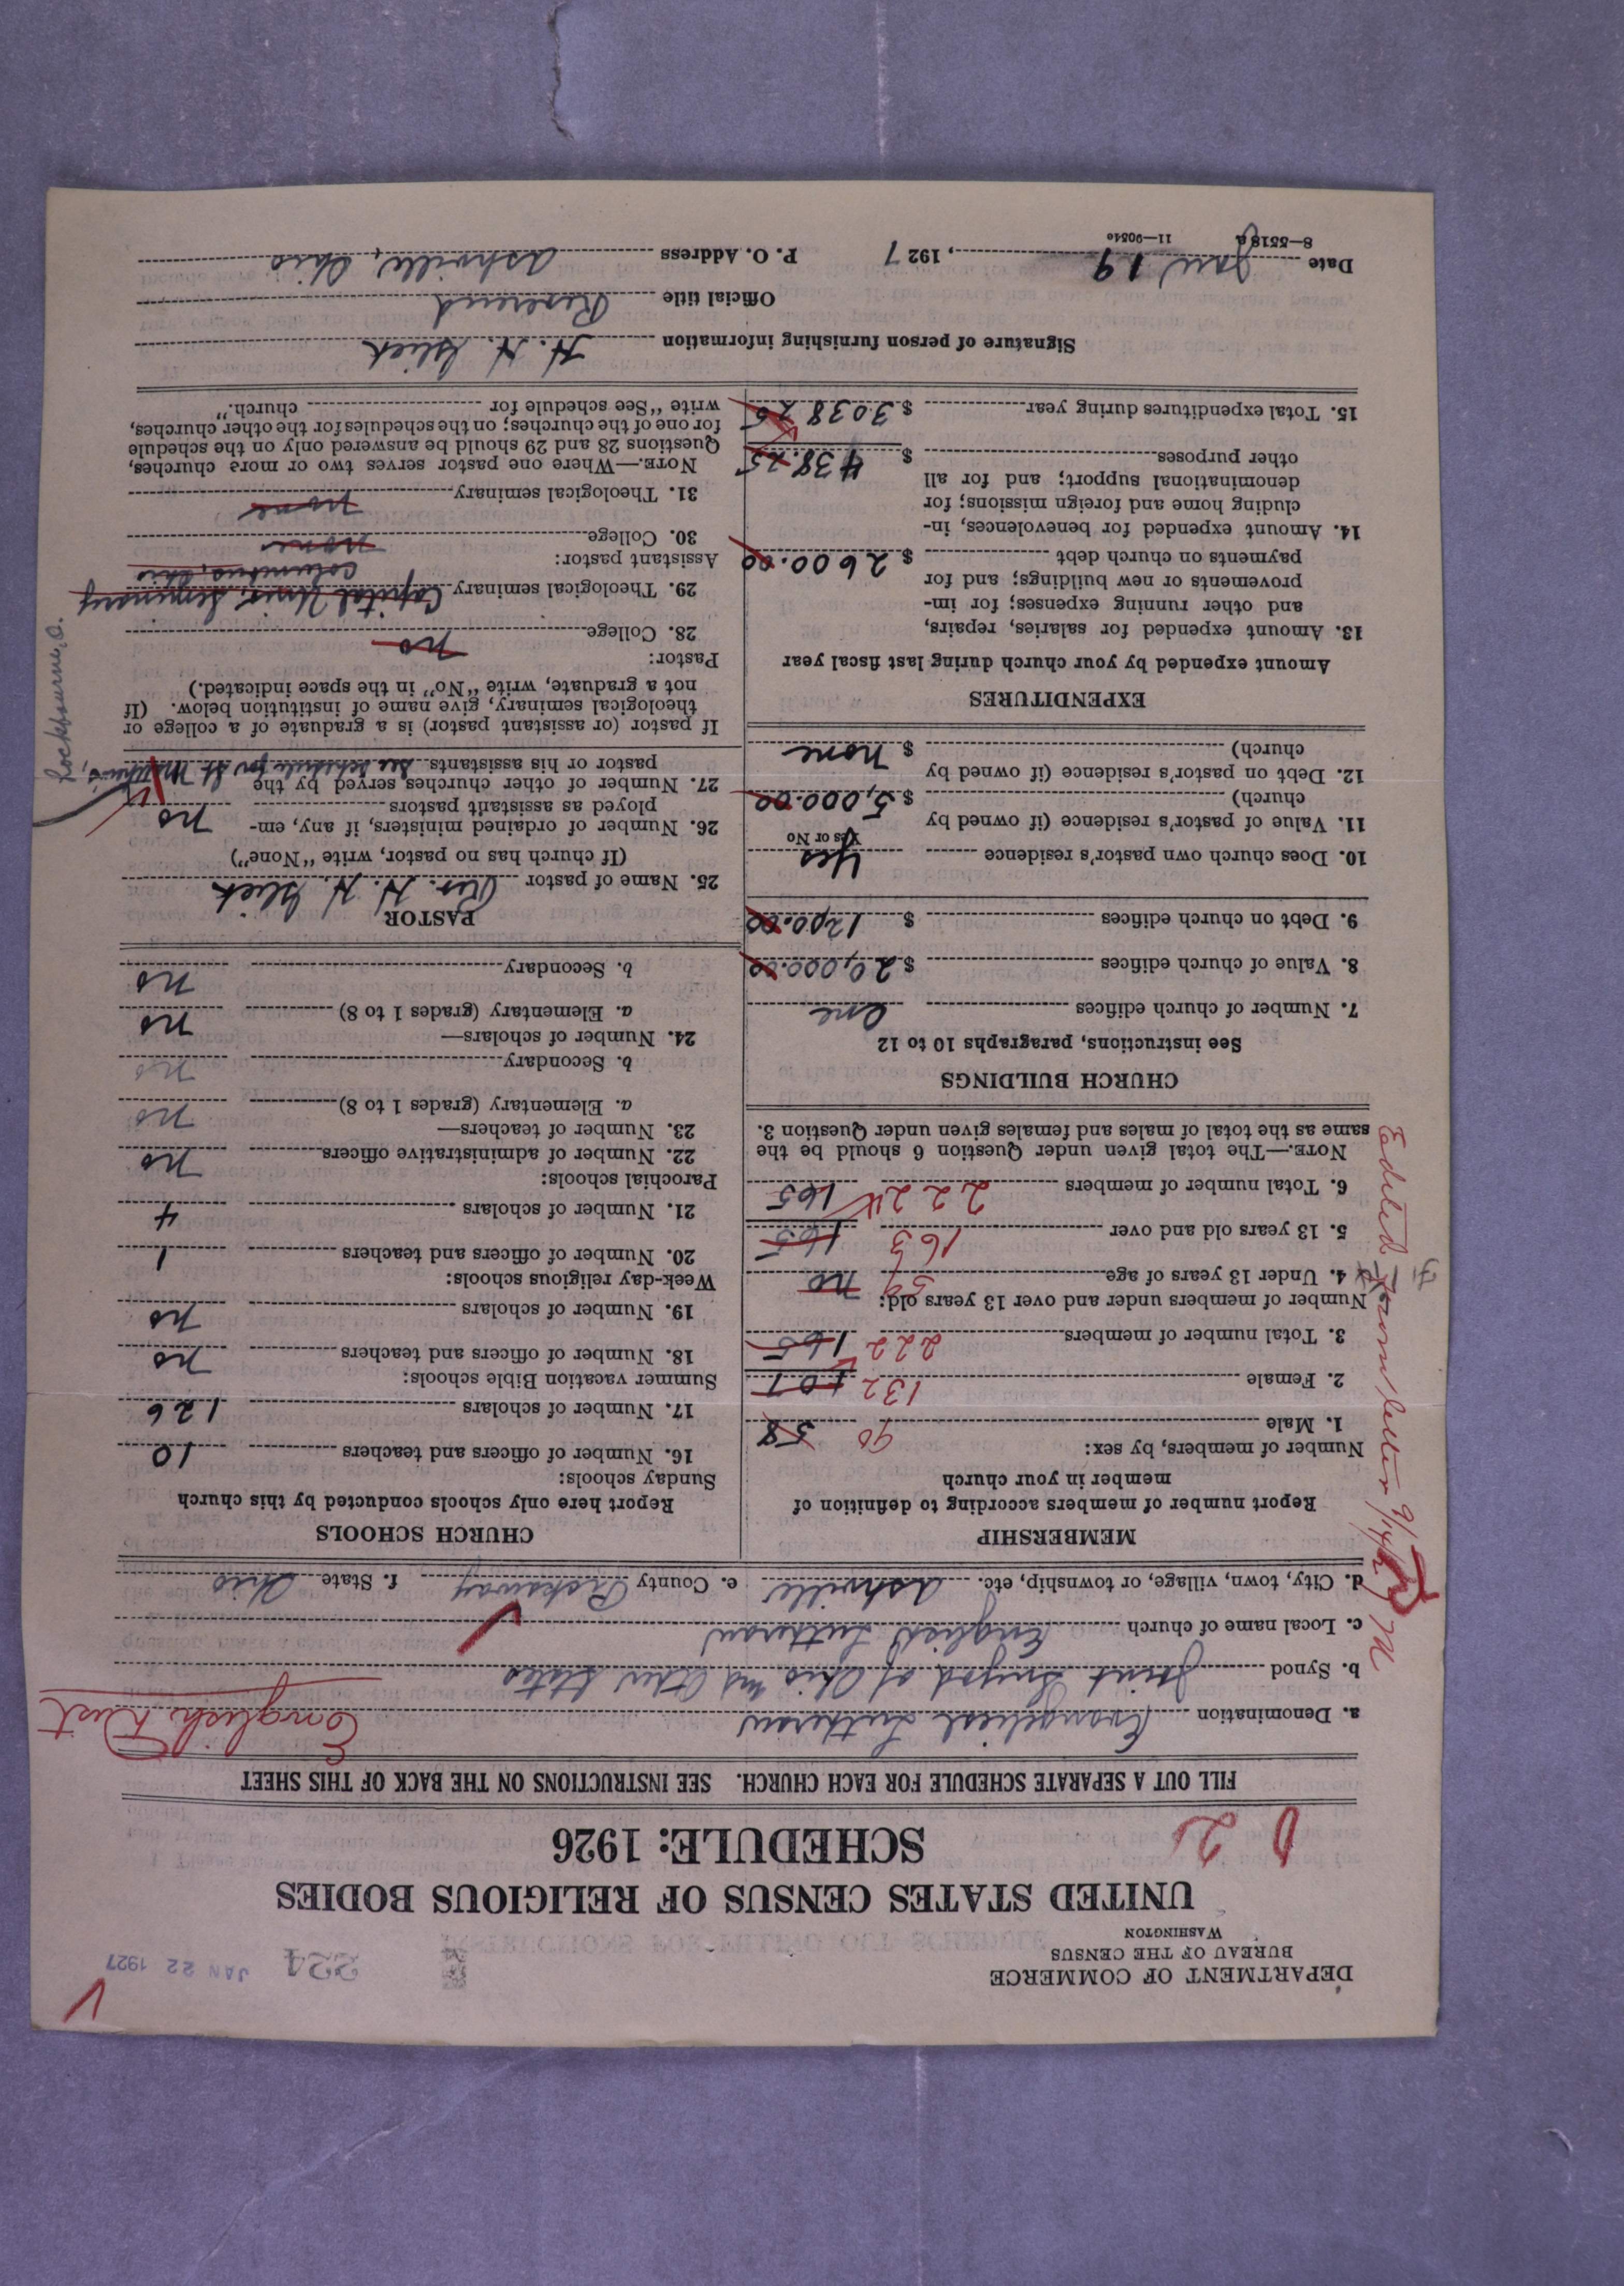 DEPARTMENT OF COMMERCE
BUREAU OF THE CENSUS
WASHINGTON
224 JAN 22 1927
UNITED STATES CENSUS OF RELIGIOUS BODIES
SCHEDULE: 1926
FILL OUT A SEPARATE SCHEDULE FOR EACH CHURCH. SEE INSTRUCTIONS ON THE BACK OF THIS SHEET
a. Denomination Evangelical Lutheran
b. Synod Joint Synod of Ohio and Other States
c. Local name of church English Lutheran
d. City, town, village, or township, etc. Ashville e. County Pickaway f. State Ohio
MEMBERSHIP
Report number of members according to definition of
member in your church
Number of members, by sex:
1. Male 90 58
2. Female 132 107
3. Total number of members 222 165
Number of members under and over 13 years old:
4. Under 13 years of age 59 no
5. 13 years old and over 163 165
6. Total number of members 222 165
NOTE.—The total given under Question 6 should be the
same as the total of males and females given under Question 3.
CHURCH BUILDINGS
See instructions, paragraphs 10 to 12
7. Number of church edifices one
8. Value of church edifices $ 20,000.00
9. Debt on church edifices $ 1200.00
10. Does church own pastor's residence Yes
Yes or No
11. Value of pastor's residence (if owned by
church) $ 5,000.00
12. Debt on pastor's residence (if owned by
church) $ none
EXPENDITURES
Amount expended by your church during last fiscal year
13. Amount expended for salaries, repairs,
and other running expenses; for im-
provements or new buildings; and for
payments on church debt $ 2600.00
14. Amount expended for benevolences, in-
cluding home and foreign missions; for
denominational support; and for all
other purposes $ 438.25
15. Total expenditures during year $ 3038.25
CHURCH SCHOOLS
Report here only schools conducted by this church
Sunday schools:
16. Number of officers and teachers 10
17. Number of scholars 126
Summer vacation Bible schools:
18. Number of officers and teachers no
19. Number of scholars no
Week-day religious schools:
20. Number of officers and teachers 1
21. Number of scholars 4
Parochial schools:
22. Number of administrative officers no
23. Number of teachers—
a. Elementary (grades 1 to 8) no
b. Secondary no
24. Number of scholars—
a. Elementary (grades 1 to 8) no
b. Secondary no
PASTOR
25. Name of pastor Rev. H. H. Glick
(If church has no pastor, write "None")
26. Number of ordained ministers, if any, em-
ployed as assistant pastors no
27. Number of other churches served by the
pastor or his assistants See schedule for St. Matthew's,
Lockbourne, O.
If pastor (or assistant pastor) is a graduate of a college or
theological seminary, give name of institution below. (If
not a graduate, write "No" in the space indicated.)
Pastor:
28. College no
29. Theological seminary Capital Univ. Seminary
Columbus, Ohio
Assistant pastor:
30. College none
31. Theological seminary none
NOTE.—Where one pastor serves two or more churches,
Questions 28 and 29 should be answered only on the schedule
for one of the churches; on the schedules for the other churches,
write "See schedule for church."
Signature of person furnishing information H. H. Glick
Official title Reverend
Date Jan 19, 1927 P. O. Address Ashville, Ohio
8—5518a 11—9051e